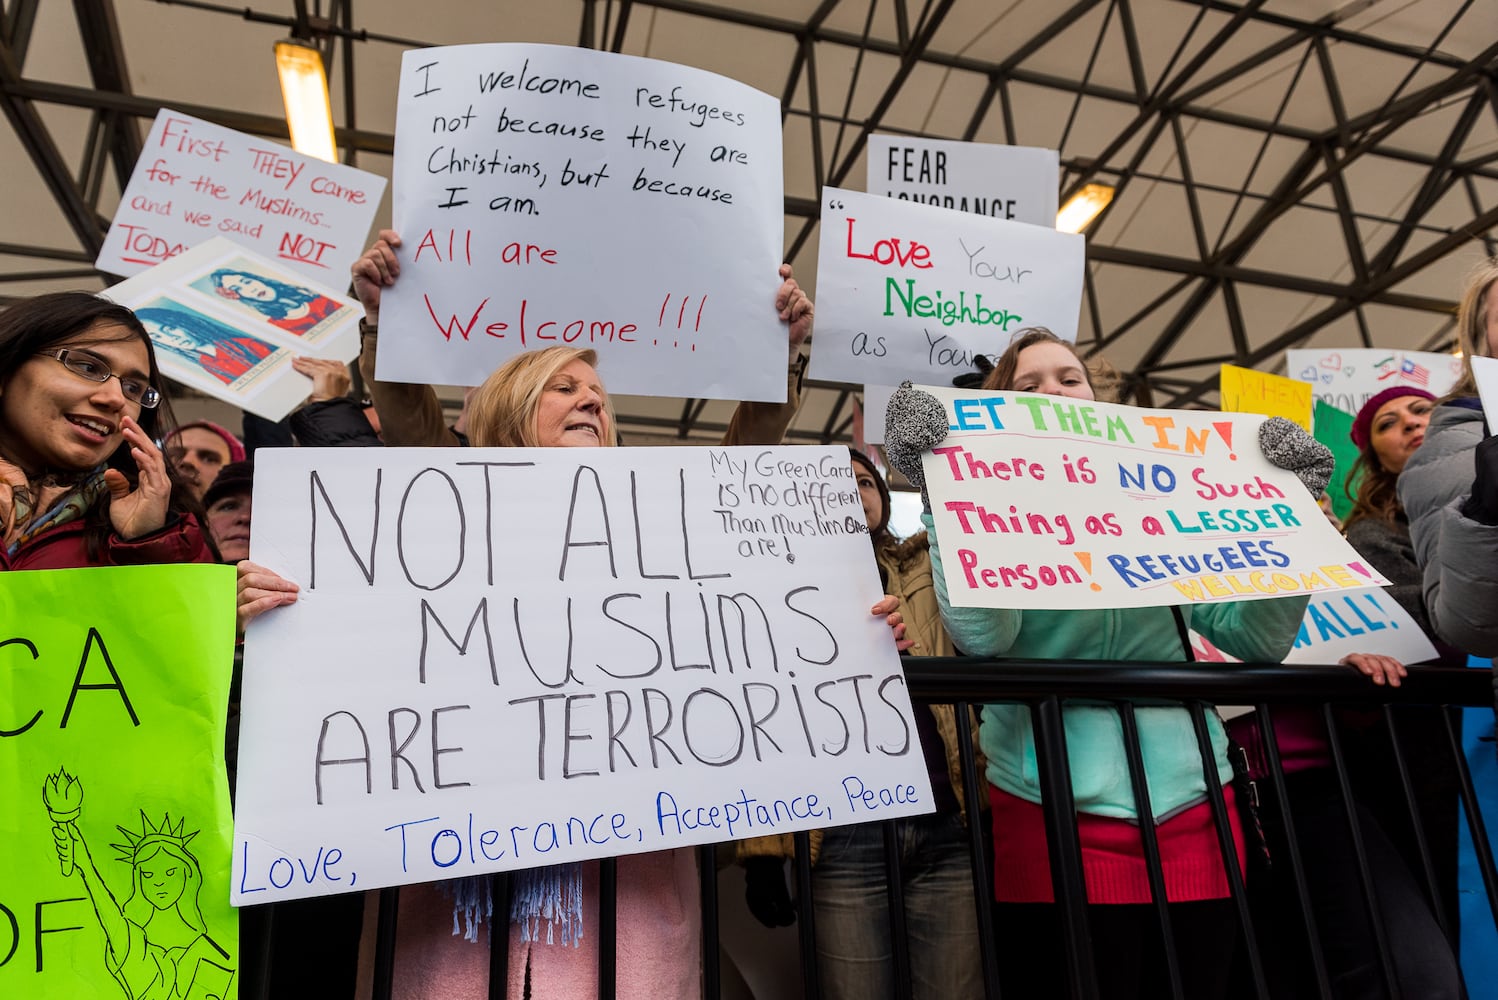 First THEY came
for the Muslims...
and we said NOT
I welcome refugees
not because they are
Christians, but because
I am.
All are
Welcome!!!
FEAR
IGNORANCE
"Love Your
Neighbor
as
WHEN
LET THEM IN!
There is NO Such
Thing as a LESSER
Person! REFUGEES
WELCOME!
WALL!
My Green Card
is no different
Than muslim ones
are!
NOT ALL
MUSLIMS
ARE TERRORISTS
Love, Tolerance, Acceptance, Peace
CA
OF